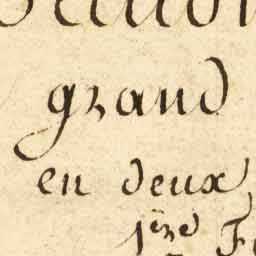 grand
en deux
1ere